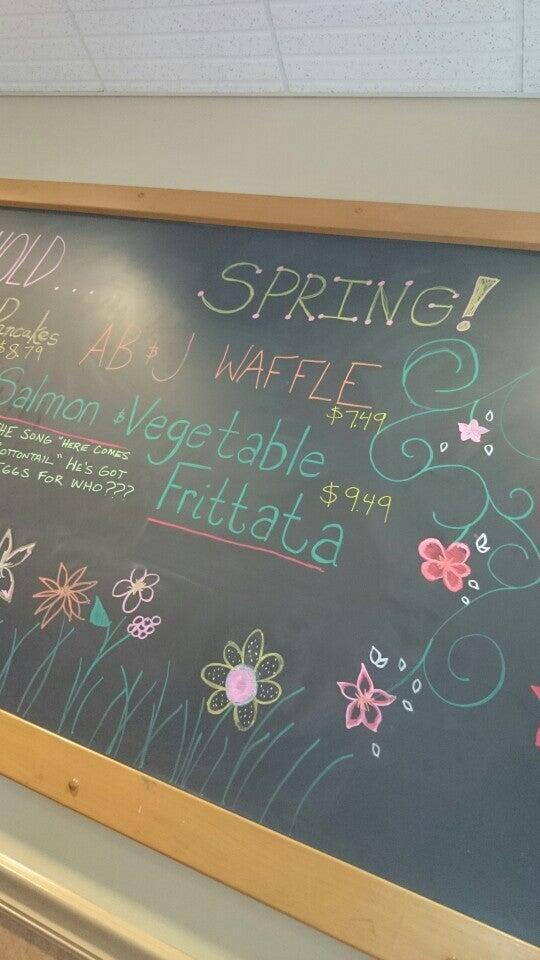 OLD.... SPRING!
Pancakes
$8.79
AB&J WAFFLE
$7.49
Salmon & Vegetable
Frittata
$9.49
THE SONG "HERE COMES
COTTONTAIL" HE'S GOT
EGGS FOR WHO???